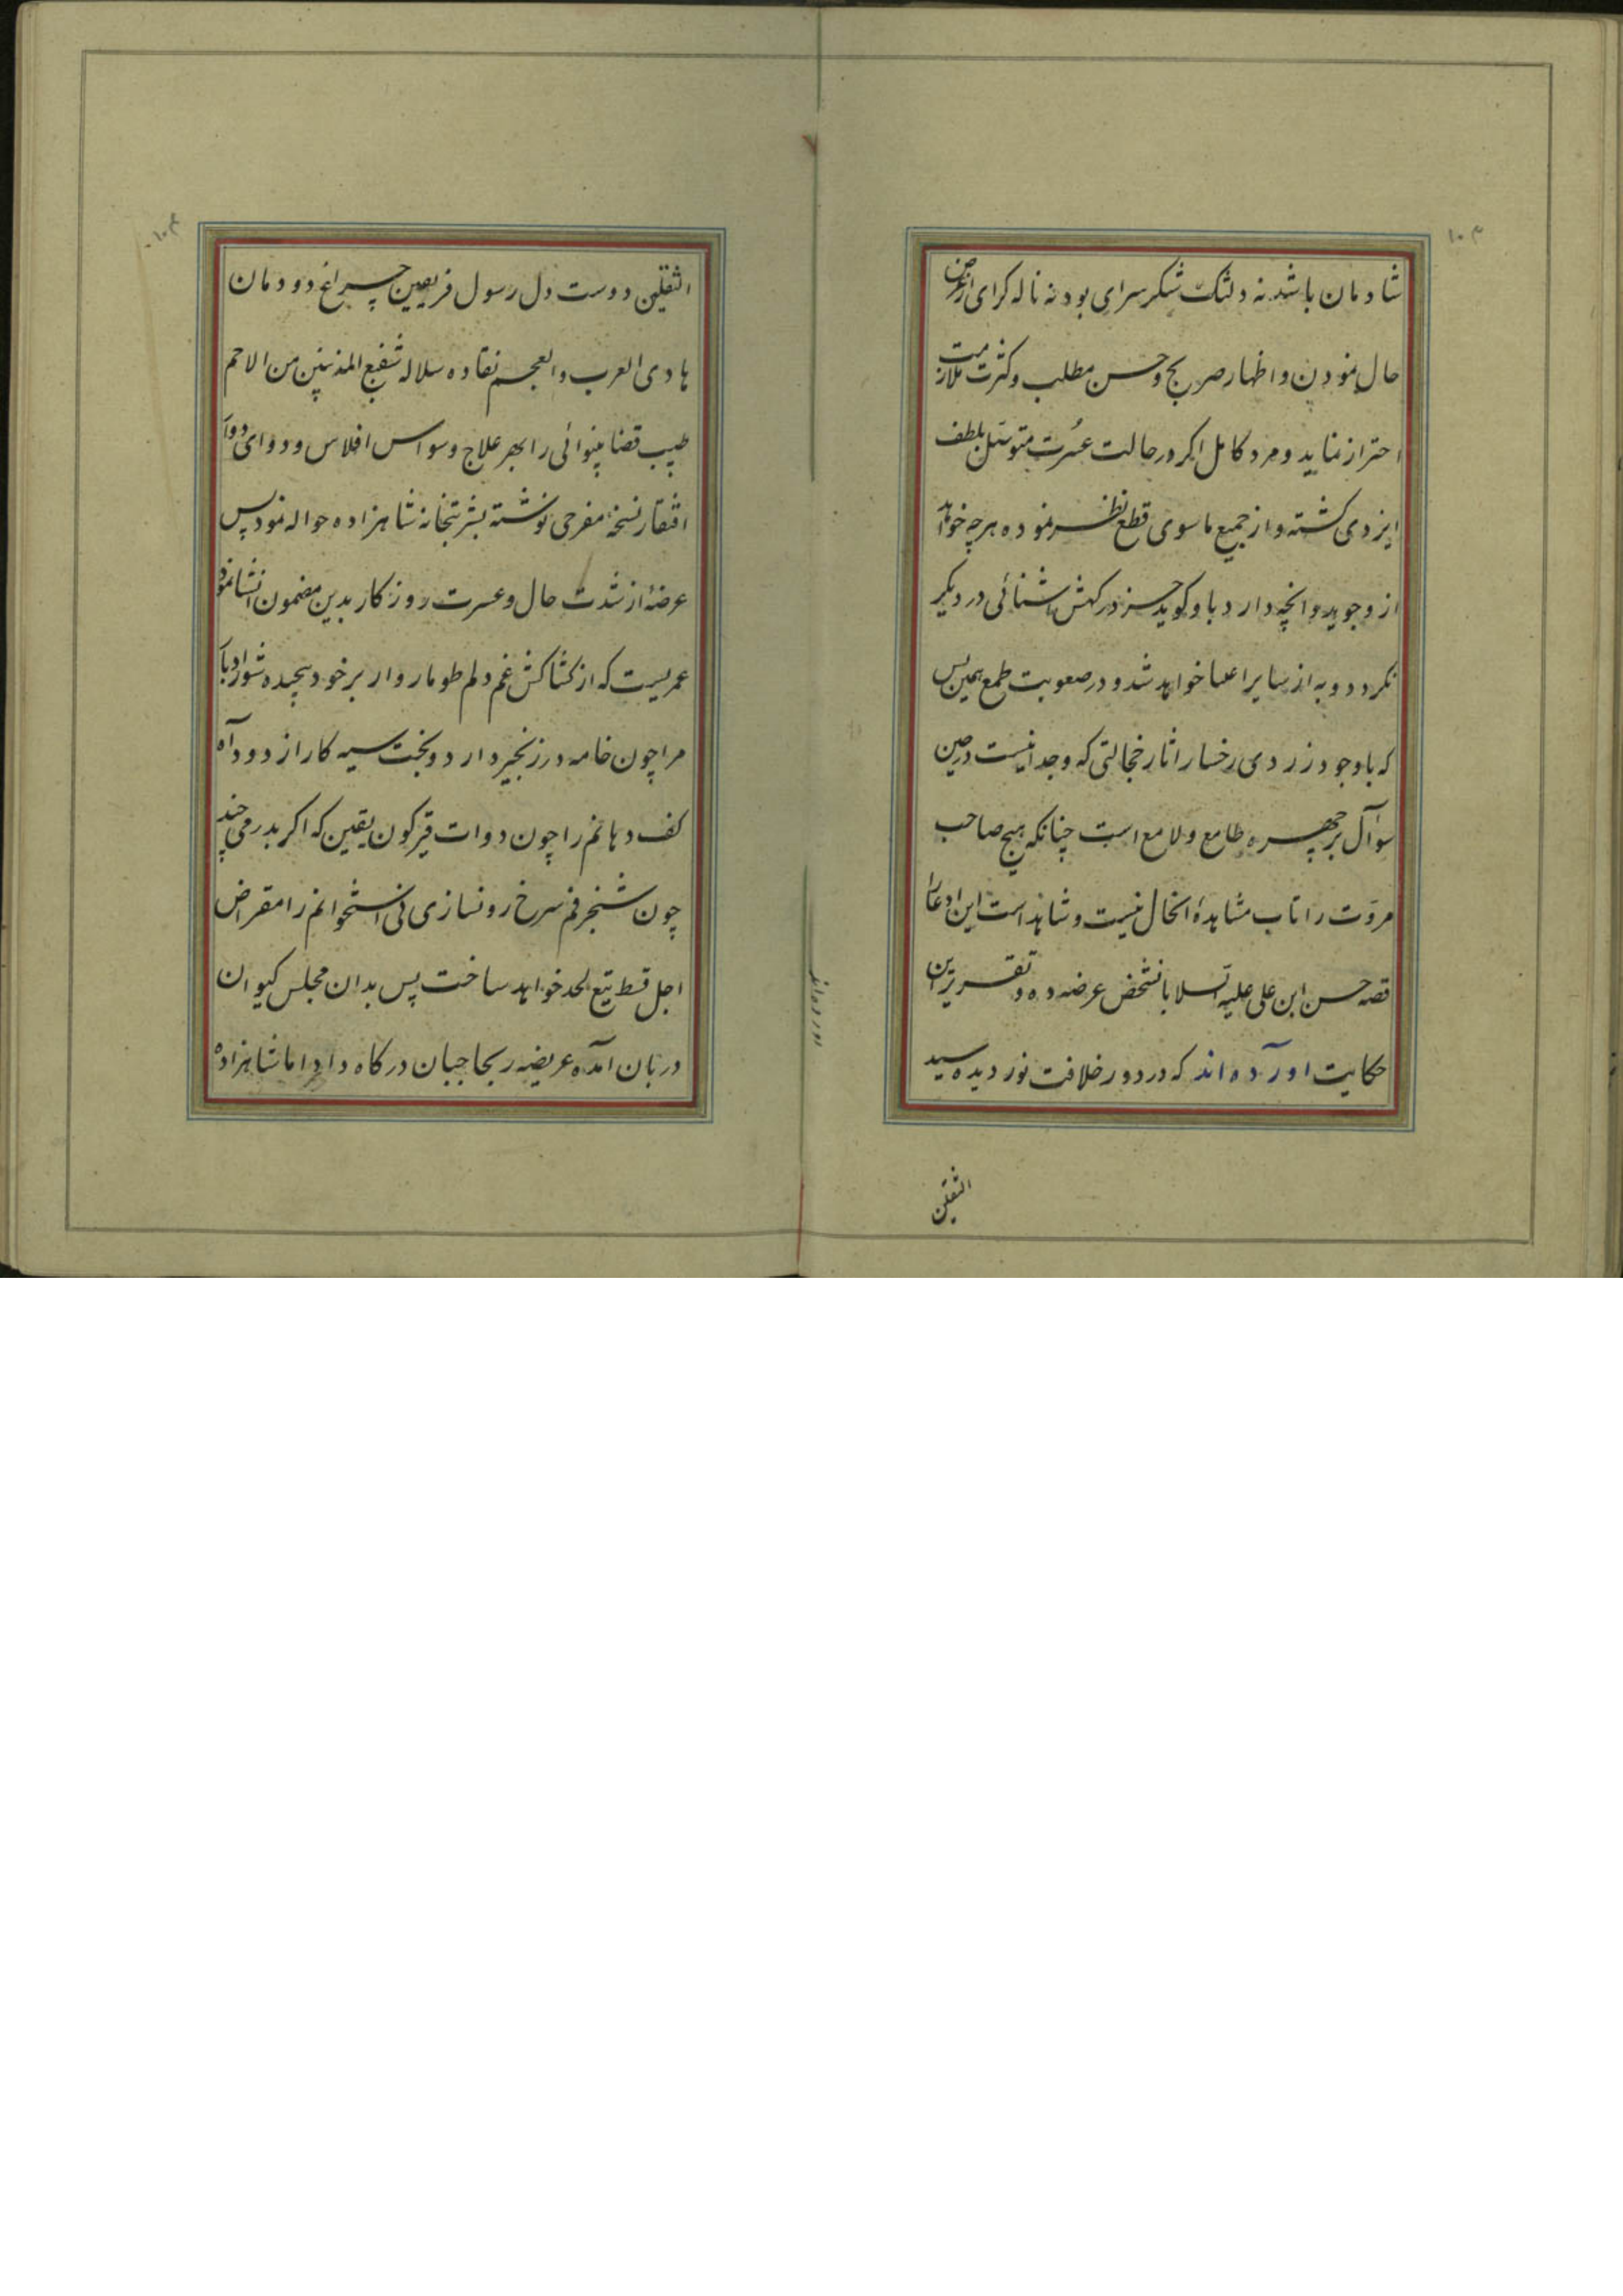 شادمان باشد نه دلتنک شکرسرای بود نه ناله کرای از عرض
حال نمودن و اظهار صریح و حسن مطلب و کثرت ملازمت
احتراز نماید و مرد کامل اکر در حالت عُسرت متوسّل بلطف
ایزدی کشته و از جمیع ماسوی قطع نظر نموده هرچه خواهد
از و جوید و انچه دارد باو کوید جز درکهش اشنائی در دیکر
نکردد و به از سایر اعلما خواهد شد و در صعوبت طمع همین بس
که باوجود زردی رخسار اثار خجالتی که وجدانیست در حین
سوآل بر چهره طامع و لامع است چنانکه هیچ صاحب
مروّت را تاب مشاهدهٔ انحال نیست و شاهد است این ادعا را
قصه حسن ابن علی علیه السلا بانشخص عرضه ده و تقریر این
حکایت اورآده اند که در دور خلافت نور دیده سید
الثقلین
الثقلین دوست دل رسول فریقین چراغ دودمان
هادی العرب والعجم نقاده سلاله شفیع المذنبین من الامم
طبیب قضا بینوائی را بهر علاج وسواس افلاس و دوای دوآء
افتقار نسخهٔ مفرحی نوشته بشربتخانه شاهزاده حواله نمود پس
عرضهٔ از شدت حال و عسرت روزکار بدین مضمون انشا نمود
عمریست که از کشاکش غم دلم طومار وار برخود پیچیده شور ادبار
مرا چون خامه در زنجیر دارد و بخت سیه کار از دود آه
کف دهانم را چون دوات قیرکون یقین که اکر بدرمی چند
چون شنجرفم سرخ رو نسازی نی استخوانم را مقراض
اجل قط تیغ لحد خواهد ساخت پس بدان مجلس کیوان
دربان آمده عریضه ربحاجبان درکاه داد اما شاهزاده